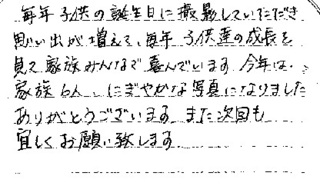 毎年子供の誕生日に撮影していただき
思い出が増えて、毎年子供達の成長を
見て家族みんなで喜んでいます。今年は、
家族6人、にぎやかな写真になりました
ありがとうございます。また次回も
宜しくお願い致します